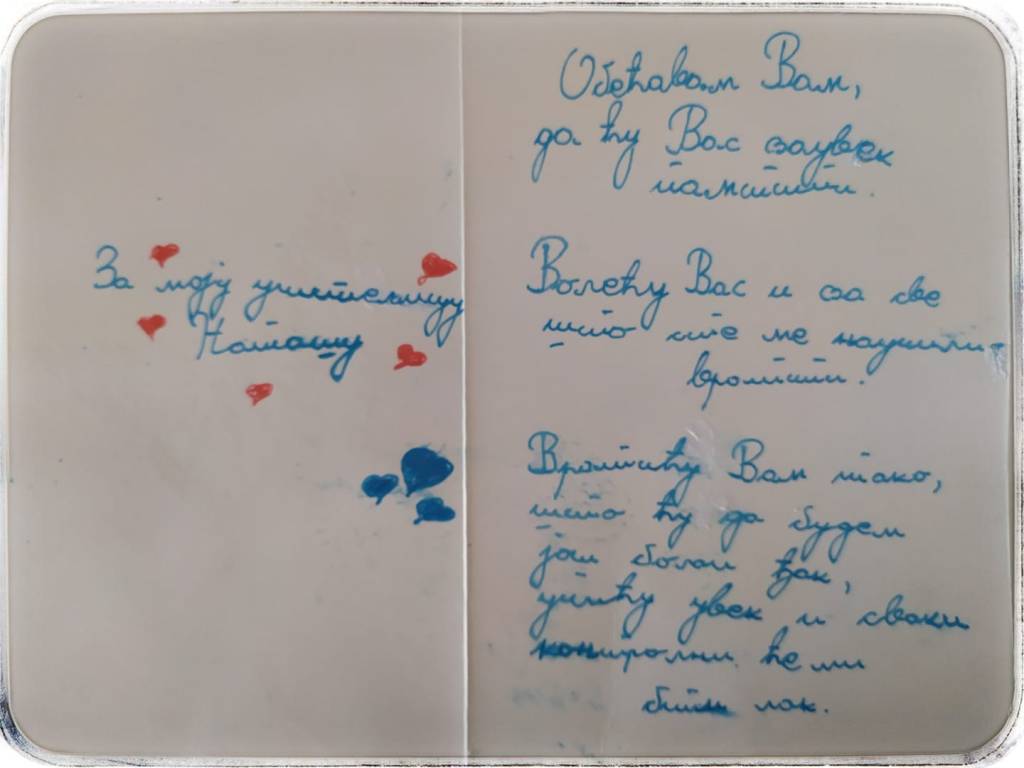 За моју учитељицу
Наташу
Обећавам Вам,
да ћу Вас заувек
памтити.
Волећу Вас и за све
што сте ме научили
вратити.
Вратићу Вам тако,
што ћу да будем
још бољи ђак,
учићу увек и сваки
контролни ће ми
бити лак.